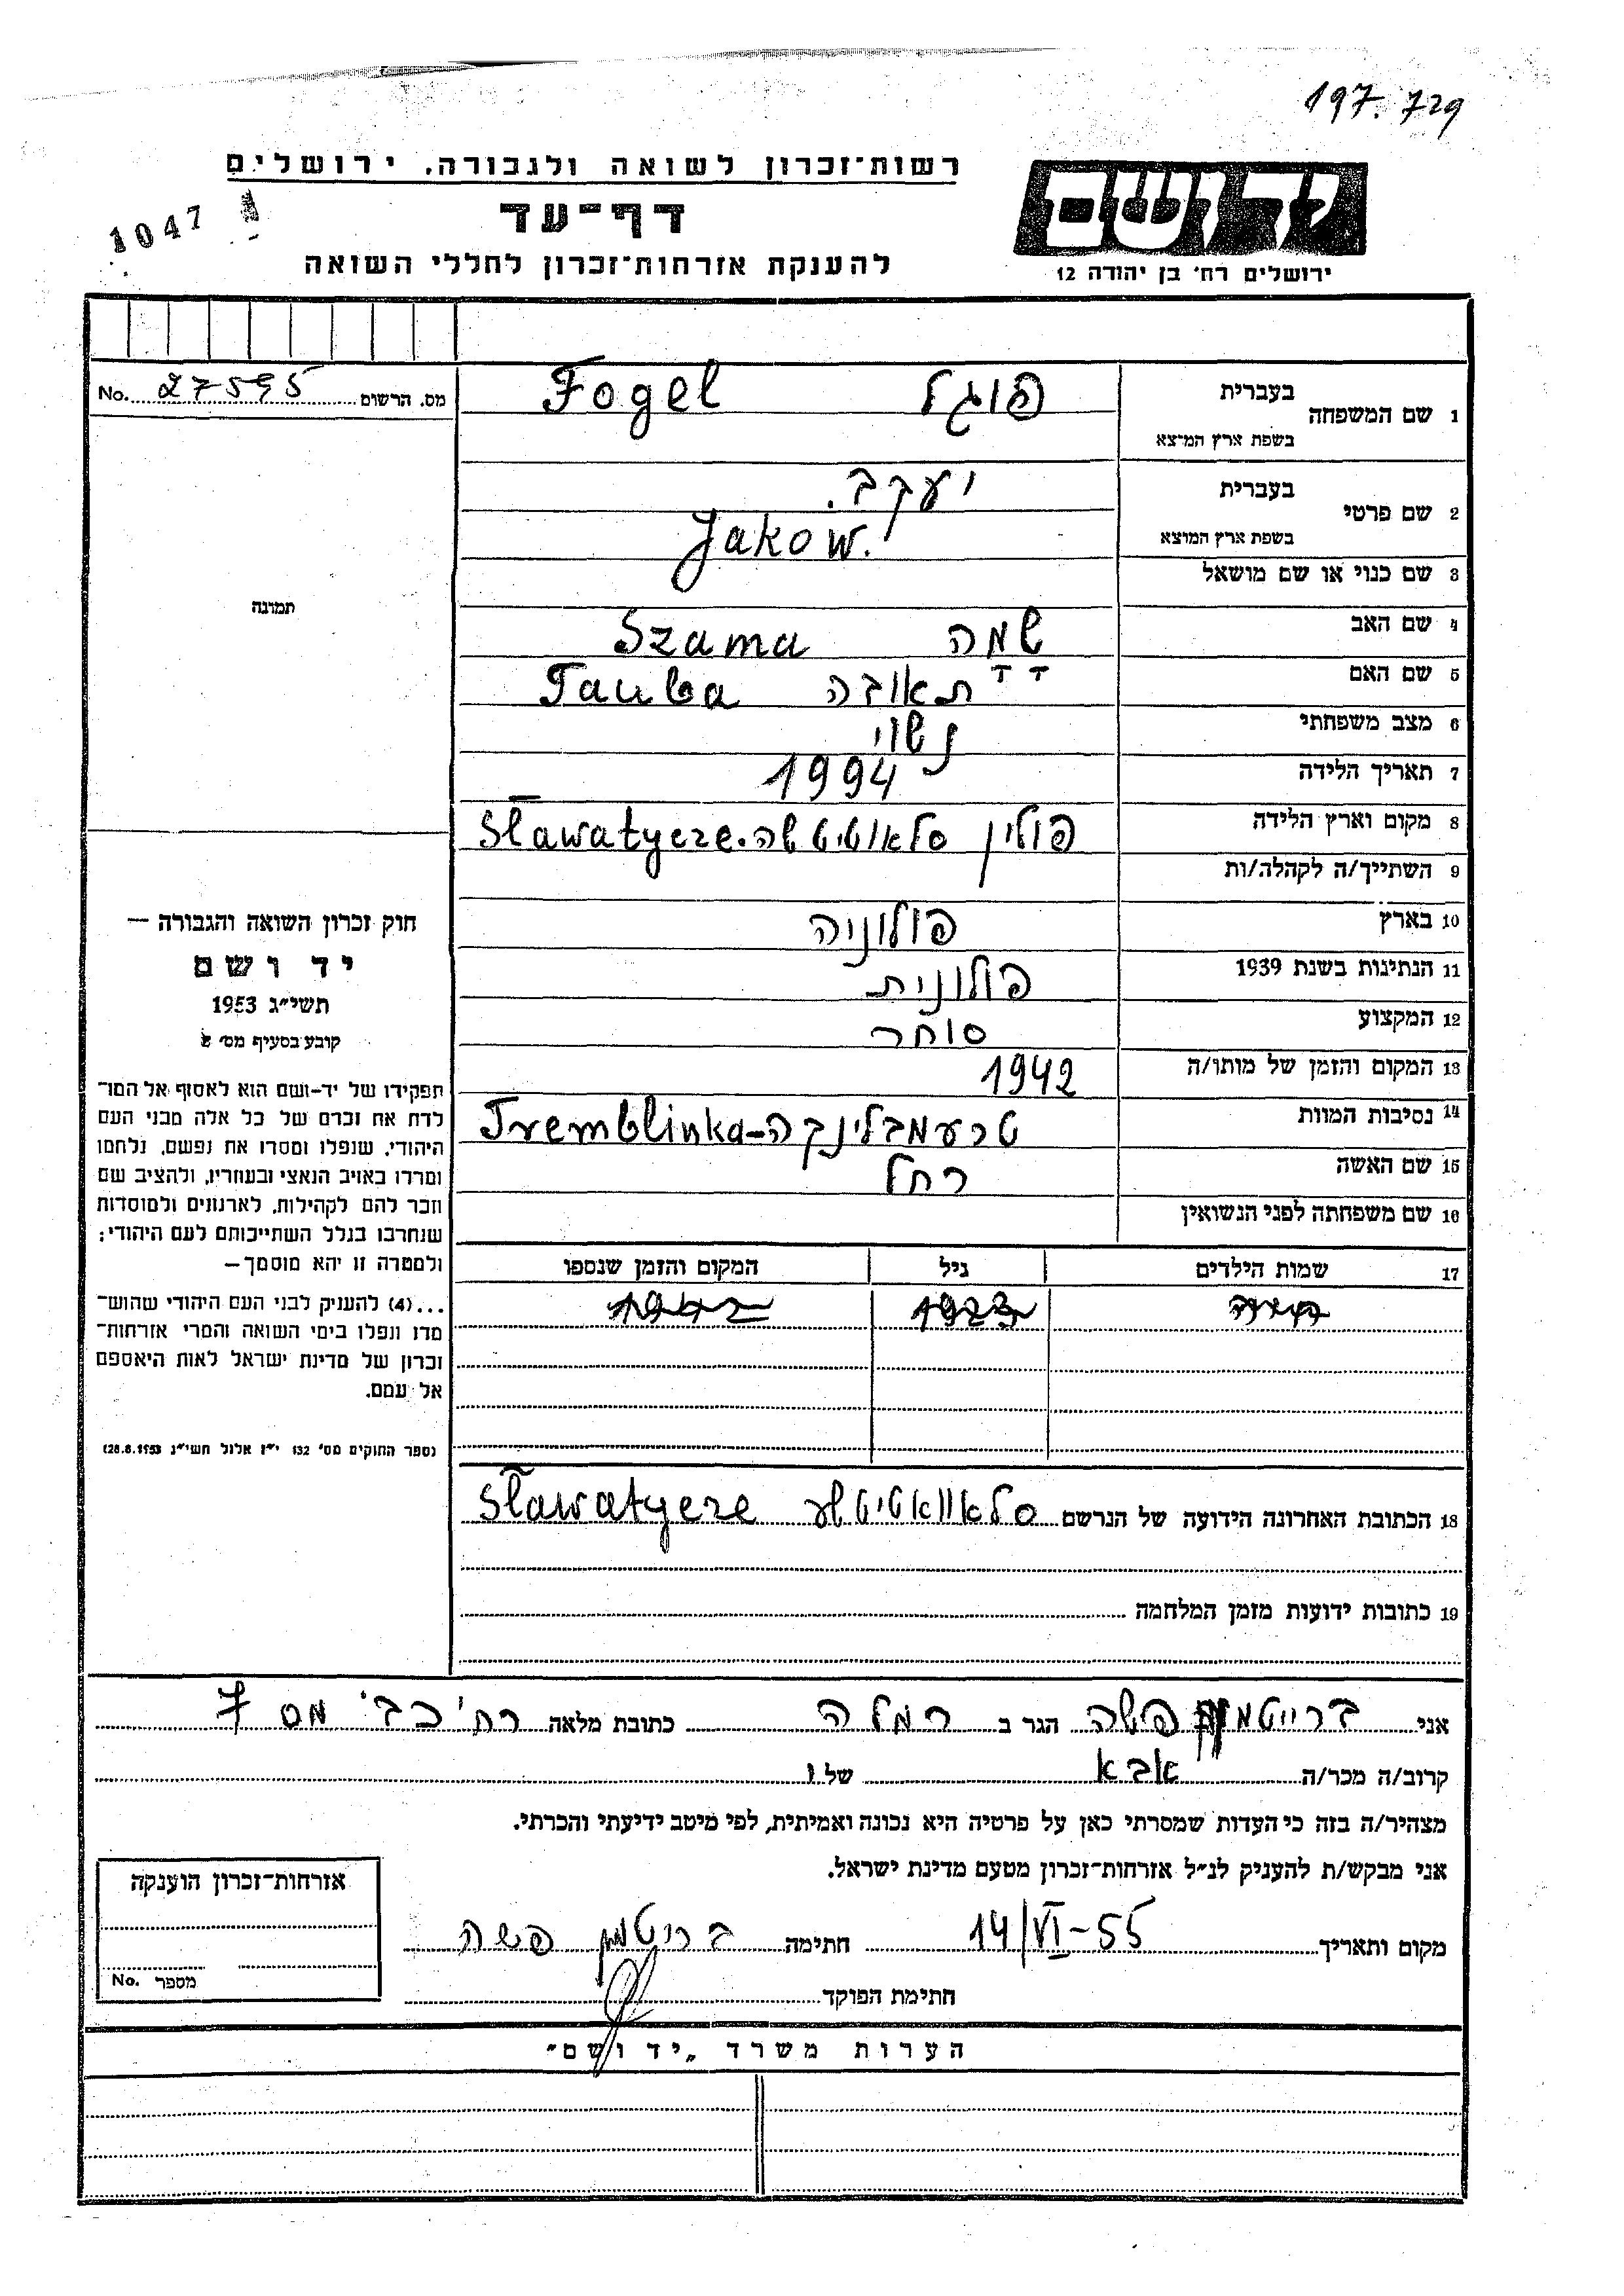 197.729
רשות-זכרון לשואה ולגבורה, ירושלים
יד ושם
1047
דף-עד
להענקת אזרחות-זכרון לחללי השואה
ירושלים רח' בן יהודה 12
מס. הרשום 27595 No.
1 שם המשפחה בעברית פוגל Fogel
בשפת ארץ המוצא
2 שם פרטי בעברית יעקב.
בשפת ארץ המוצא Jakow.
3 שם כנוי או שם מושאל
תמונה
4 שם האב שמה Szama
5 שם האם תאובה Tauba
6 מצב משפחתי נשוי
7 תאריך הלידה 1994
8 מקום וארץ הלידה פולין סלאוטיטשה. Sławatycze
9 השתייך/ה לקהלה/ות
10 בארץ פולוניה
11 הנתינות בשנת 1939 פולונית
12 המקצוע סוחר
13 המקום והזמן של מותו/ה 1942
14 נסיבות המוות טרעמבלינקה - Tremblinka
15 שם האשה רחל
16 שם משפחתה לפני הנשואין
17 שמות הילדים גיל המקום והזמן שנספו
1923 1942
חוק זכרון השואה והגבורה —
יד ושם
תשי"ג 1953
קובע בסעיף מס'
תפקידו של יד-ושם הוא לאסוף אל המו-
לדת את זכרם של כל אלה מבני העם
היהודי, שנפלו ומסרו את נפשם, נלחמו
ומרדו באויב הנאצי ובעוזריו, ולהציב שם
וזכר להם לקהילות, לארגונים ולמוסדות
שנחרבו בגלל השתייכותם לעם היהודי;
ולמטרה זו יהא מוסמך —
...(4) להעניק לבני העם היהודי שהוש-
מדו ונפלו בימי השואה והמרי אזרחות-
זכרון של מדינת ישראל לאות היאספם
אל עמם.
(ספר החוקים מס' 132 י"ז אלול תשי"ג 28.8.1953)
18 הכתובת האחרונה הידועה של הנרשם סלאוואטיטשע Sławatycze
19 כתובות ידועות מזמן המלחמה
אני ברייטמן פשה הגר ב רמלה כתובת מלאה רח' כב' מס 7
קרוב/ה מכר/ה אבא של ו
מצהיר/ה בזה כי העדות שמסרתי כאן על פרטיה היא נכונה ואמיתית, לפי מיטב ידיעתי והכרתי.
אני מבקש/ת להעניק לנ"ל אזרחות-זכרון מטעם מדינת ישראל.
מקום ותאריך 14/VI-55 חתימה ברוטמן פשה
חתימת הפוקד
אזרחות-זכרון הוענקה
מספר No.
הערות משרד „יד ושם"